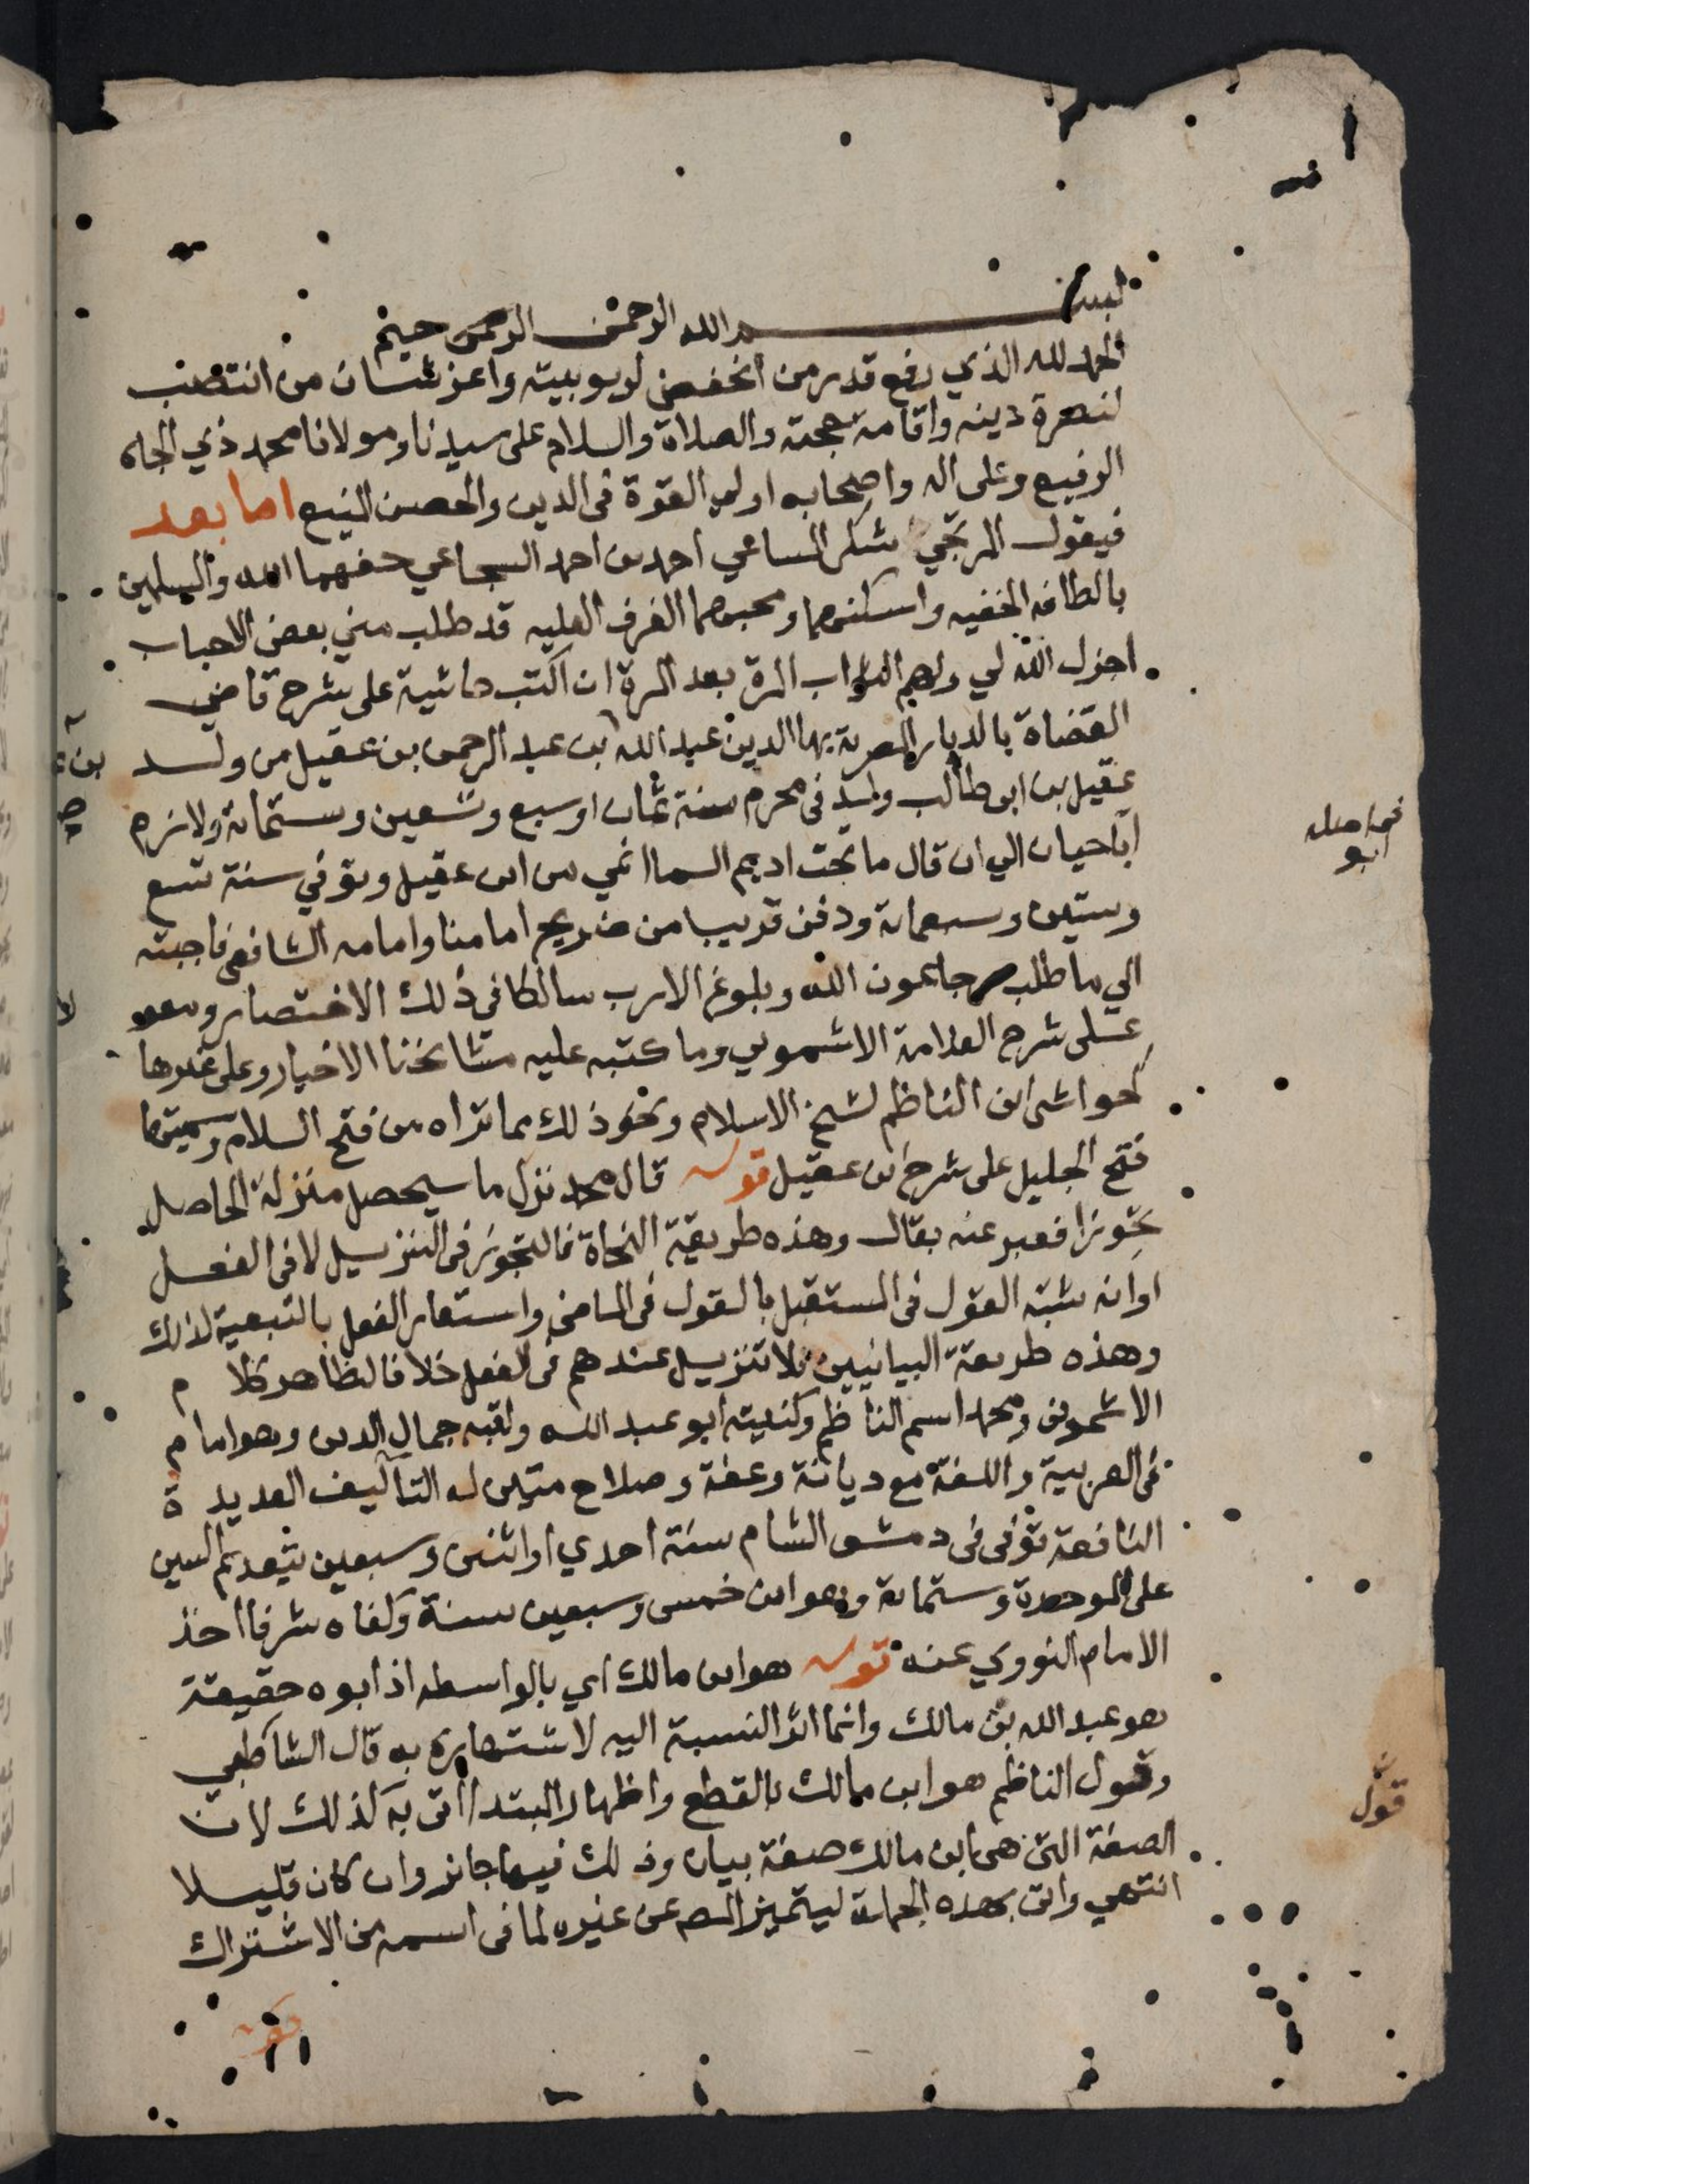 بسم الله الرحمن الرحيم
الحمد لله الذي رفع قدر من انخفض لربوبيته واعز شان من انتصب
لنصرة دينه واقامة حجته والصلاة والسلام على سيدنا ومولانا محمد ذي الجاه
الرفيع وعلى اله واصحابه اولي القوة في الدين والحصن المنيع اما بعد
فيقول المرتجي شكر المساعي احمد بن احمد السجاعي حفهما الله والمسلمين
بالطافه الخفيه واسكنهما ومحبهما الغرف العليه قد طلب مني بعض الاحباب
اجزل الله لي ولهم الثواب المرة بعد المرة ان اكتب حاشية على شرح قاضي
القضاة بالديار المصرية بها الدين عبد الله بن عبد الرحمن بن عقيل من ولد
عقيل بن ابي طالب ولد في محرم سنة ثمان او سبع وتسعين وستماية ولازم
اباحيان الي ان قال ما تحت اديم السما انحي من ابن عقيل وتوفي سنة تسع
وستين وسبعماية ودفن قريبا من ضريح امامنا وامامه الشافعي فاجبته
الي ما طلب رجا عون الله وبلوغ الارب سالكا في ذلك الاختصار
على شرح العلامة الاشموني وما كتبه عليه مشائخنا الاخيار وعلى غيرها
كحواشي ابن الناظم لشيخ الاسلام ونحو ذلك مما تراه من فتح السلام وسميتها
فتح الجليل على شرح ابن عقيل قوله قال محمد نزل ما سيحصل منزلة الحاصل
تجوزا فعبر عنه بقال وهذه طريقة النحاة فالتجوز في التنزيل لا في الفعل
او انه شبه القول في المستقبل بالقول في الماضي واستعار الفعل بالتبعية لذلك
وهذه طريقة البيانيين فلا تنزيل عندهم في الفعل خلافا لظاهر كلام
الاشموني ومحمد اسم الناظم وكنيته ابو عبد الله ولقبه جمال الدين وهو امام
في العربية واللغة مع ديانة وعفة وصلاح متين له التآليف العديدة
النافعة توفي في دمشق الشام سنة احدي او اثنين وسبعين بتقديم السين
على الموحدة وستماية وهو ابن خمس وسبعين سنة وكفاه شرفا اخذ
الامام النووي عنه قوله هو ابن مالك اي بالواسطه اذ ابوه حقيقة
هو عبد الله بن مالك وانما اثر النسبة اليه لاشتهاره به قال الشاطبي
وقول الناظم هو ابن مالك بالقطع واظهار المبتدا اتى به كذلك لان
الصفة التي هي ابن مالك صفة بيان وذلك فيها جائز وان كان قليلا
انتهي واتى بهذه الجملة ليتميز المص عن غيره لما في اسمه من الاشتراك
قوله
ابو
قول